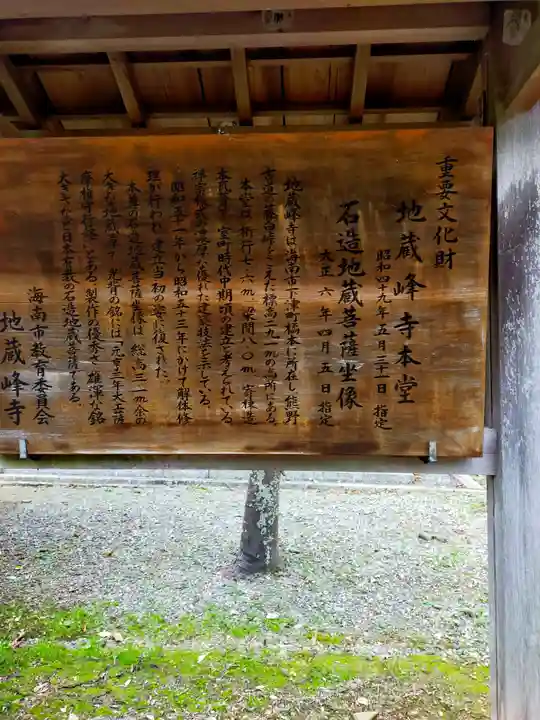 重要文化財
地蔵峰寺本堂
昭和四十九年五月三十一日 指定
石造地蔵菩薩坐像
大正六年四月五日 指定
地蔵峰寺は海南市下津町橘本に所在し、熊野
古道の藤白峠をこえた標高二九一mの高所にある。
本堂は、桁行七.六m、梁間八.〇m、寄棟造
本瓦葺で、室町時代中期頃の建立と考えられている
禅宗様式の濃厚な優れた建築技法を示している。
昭和五十一年から昭和五十三年にかけて解体修
理が行われ、建立当初の姿に復された。
本尊の石造地蔵菩薩坐像は、総高三一m余の
大きな地蔵尊で、光背の銘には「元亨三年大工薩
摩権守行経」とある。製作の優秀さ、雄渾な銘
大きさなど日本有数の石造地蔵菩薩である。
海南市教育委員会
地蔵峰寺